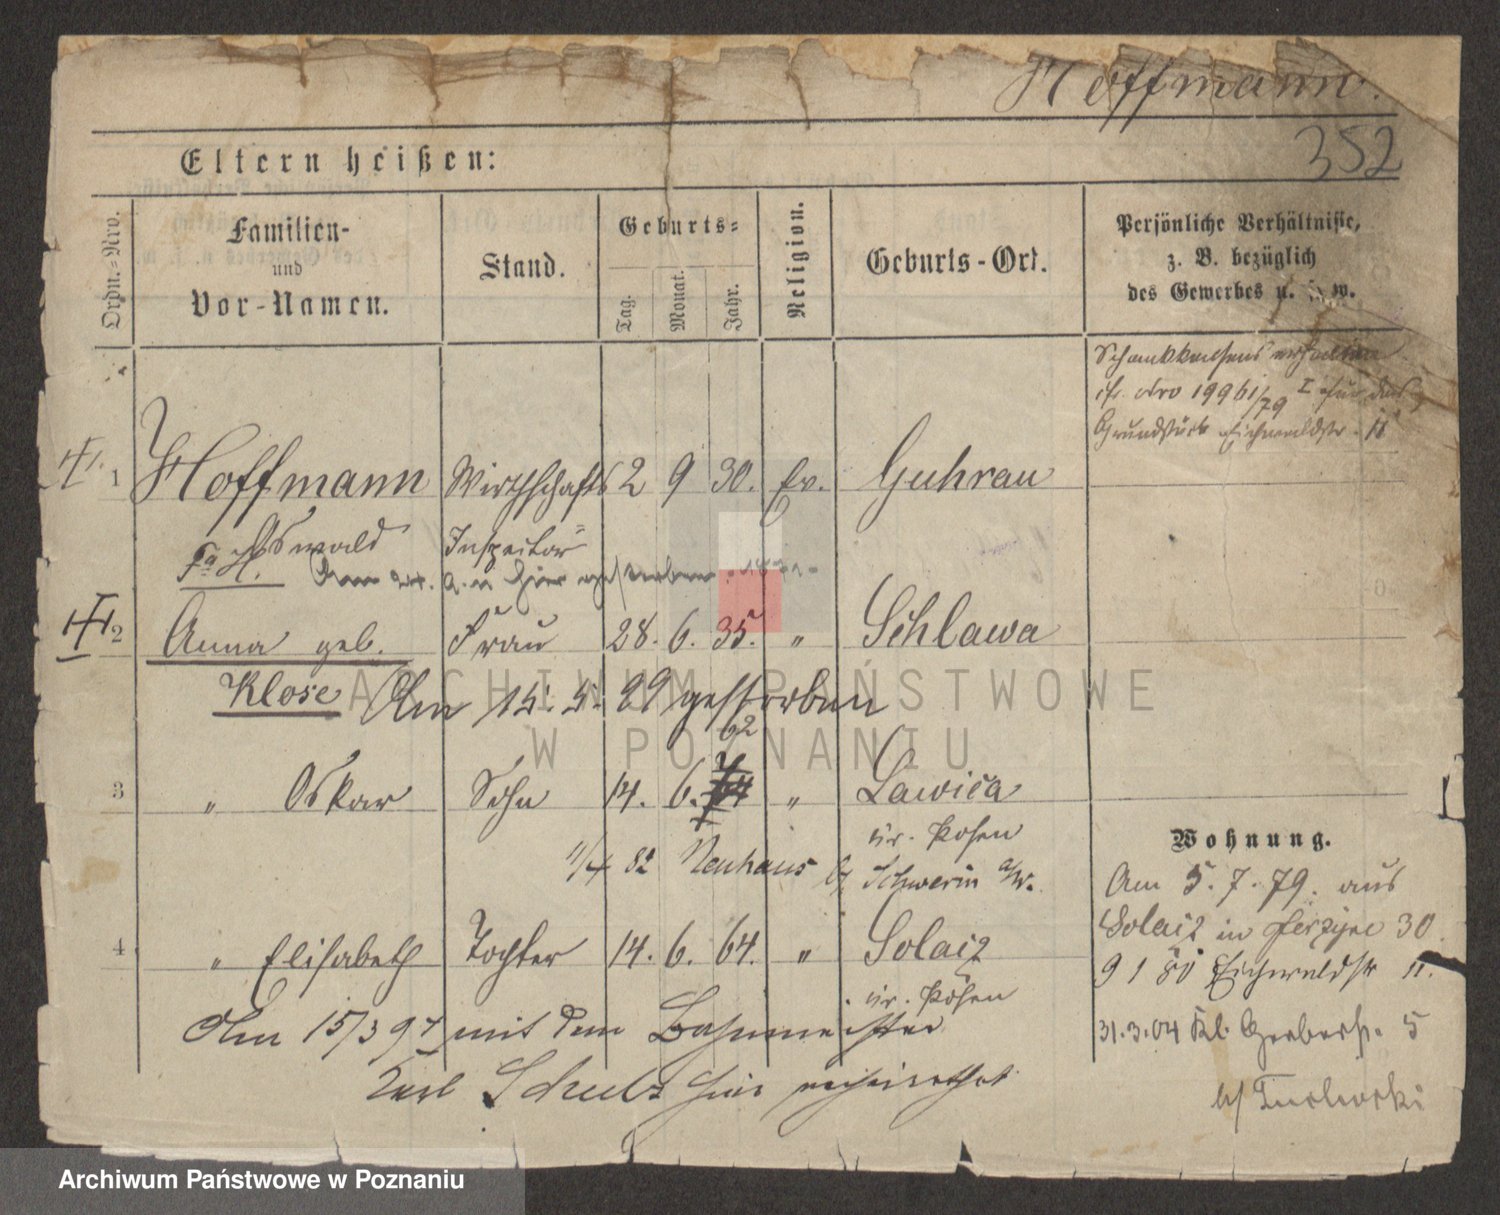 Hoffmann.
352
Eltern heißen:
Ordn.-Nro.
Familien-
und
Vor-Namen.
Stand.
Geburts-
Tag.
Monat.
Jahr.
Religion.
Geburts-Ort.
Persönliche Verhältnisse,
z. B. bezüglich
des Gewerbes u. s. w.
Schankkonsens erhalten
Grundstück Eichwaldstr. 11
1 Hoffmann Wirthschafts 2 9 30. Ev. Guhrau
Oswald Inspector
Fa H. Am 24. hier gestorben
2 Anna geb. Frau 28. 6. 35. " Schlawa
Klose Am 15. 5. 99 gestorben
62
3 " Oskar Sohn 14. 6. " Lawica
Kr. Posen
11/4 82 Neuhaus b/ Schwerin a/W.
4 " Elisabeth Tochter 14. 6. 64. " Solacz
Kr. Posen
Am 15/3 97 mit dem Bahnmeister
Karl Schulz hier verheirathet
Wohnung.
Am 5. 7. 79. aus
Solacz in Jerzyce 30
9 1 80 Eichwaldstr 11.
31.3.04 Kl. Gerberstr. 5
b/
ARCHIWUM PAŃSTWOWE
W POZNANIU
Archiwum Państwowe w Poznaniu